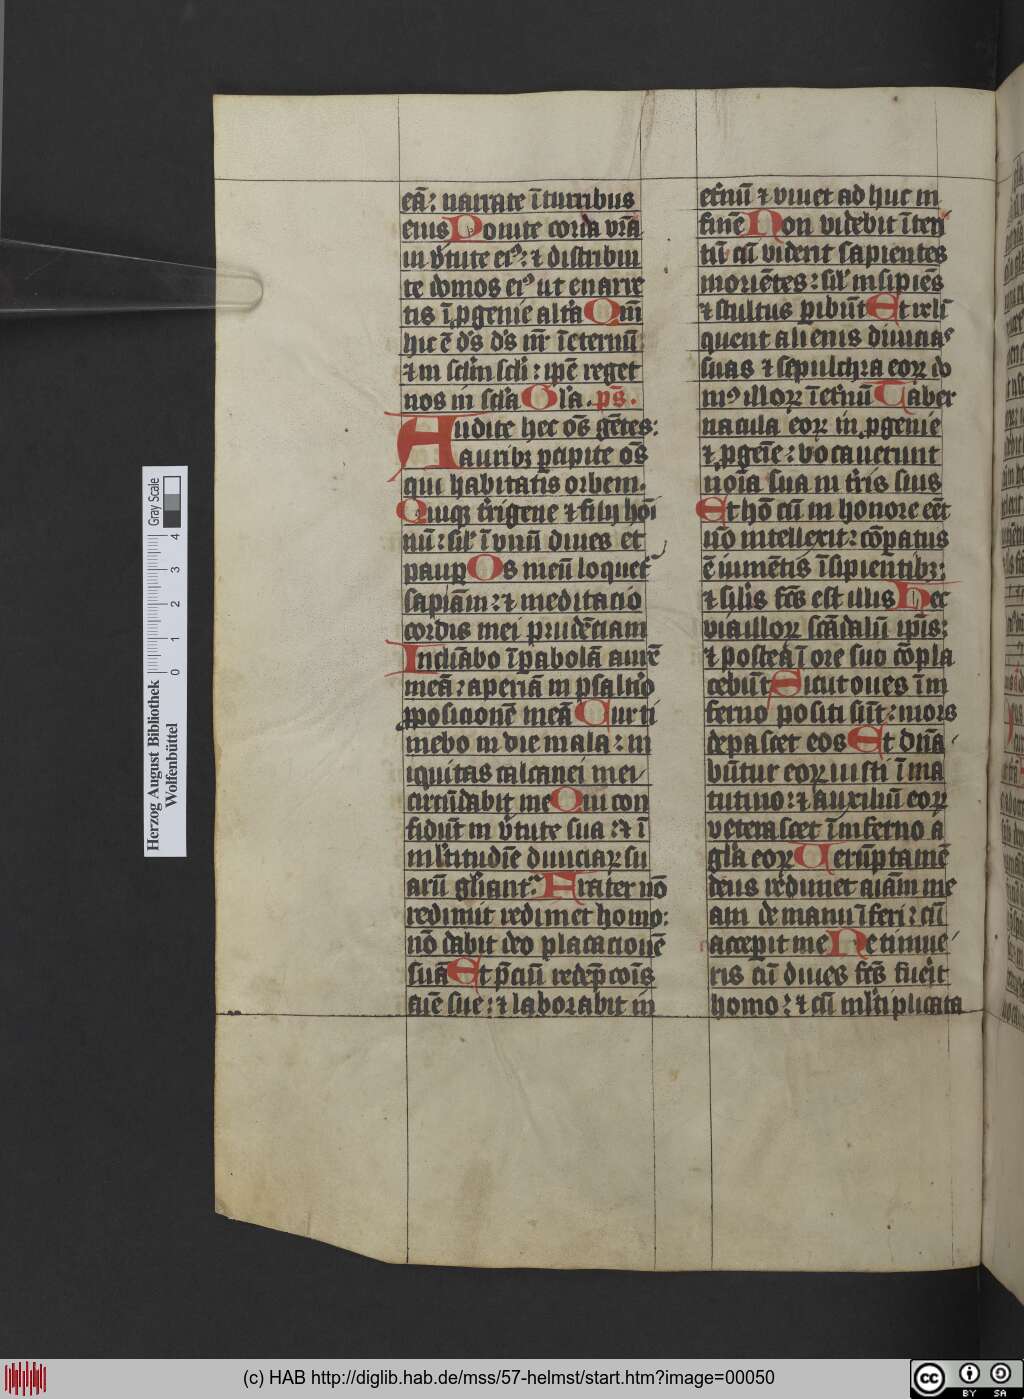 eā: narrate ī turribus
eius Ponite corda vr̄a
in v̓tute ei⁹: ⁊ distribui
te domos ei⁹ ut enarre
tis ī ꝓgenie alt̓a Qm̄
hic ē d̄s d̄s nr̄ ī eternū
⁊ in sclm̄ scli: ip̄e reget
nos in scl̓a Gl̓a. ps̄.
Audite hec om̄s gētes:
auribꝫ ꝑcipite om̄s
qui habitatis orbem.
Quiqꝫ t̓rigene ⁊ filij hoī
nū: sil̓ ī vnū diues et
paup̱ Os meū loquet᷑
sapiām: ⁊ meditacio
cordis mei prudēciam
Inclīabo ī ꝑabolā aurē
meā: aperiā in psalt̓io
ꝓposicionē meā Cur ti
mebo in die mala: in
iquitas calcanei mei
circūdabit me Qui con
fidūt in v̓tute sua: ⁊ ī
ml̓titudīe diuiciaꝝ su
arū gl̓iant᷑ Frater nō
redimit redimet homo:
nō dabit deo placacionē
suā Et p̄ciū redēpcoīs
aīe sue: ⁊ laborabit in
et̓nū ⁊ viuet ad huc in
finē Non videbit īteri
tū cū viderit sapientes
moriētes: sil̓ insipiēs
⁊ stultus ꝑibūt Et reli
quent alienis diuicias
suas ⁊ sepulchra eoꝝ do
m⁹ illoꝝ ī et̓nū Taber
nacula eoꝝ in ꝓgenie
⁊ ꝓgeīe: vocauerunt
noīa sua in t̓ris suis
Et hō cū in honore eēt
nō intellexit: cōꝑatus
ē iumētis īsipientibꝫ:
⁊ sil̓is fc̄s est illis Hec
via illoꝝ scādalū ip̄is:
⁊ postea ī ore suo cōpla
cebūt Sicut oues ī in
ferno positi sūt: mors
depascet eos Et dn̄a
būtur eoꝝ iusti ī ma
tutino: ⁊ auxiliū eoꝝ
veterascet ī inferno a
gl̓a eoꝝ Verūptamē
deus redimet aīam me
am de manu īferi: cū
acceperit me Ne timue
ris cū diues fc̄s fuerit
homo: ⁊ cū ml̓tiplicata
Herzog August Bibliothek
Wolfenbüttel
Gray Scale
0 1 2 3 4
(c) HAB http://diglib.hab.de/mss/57-helmst/start.htm?image=00050
cc BY SA